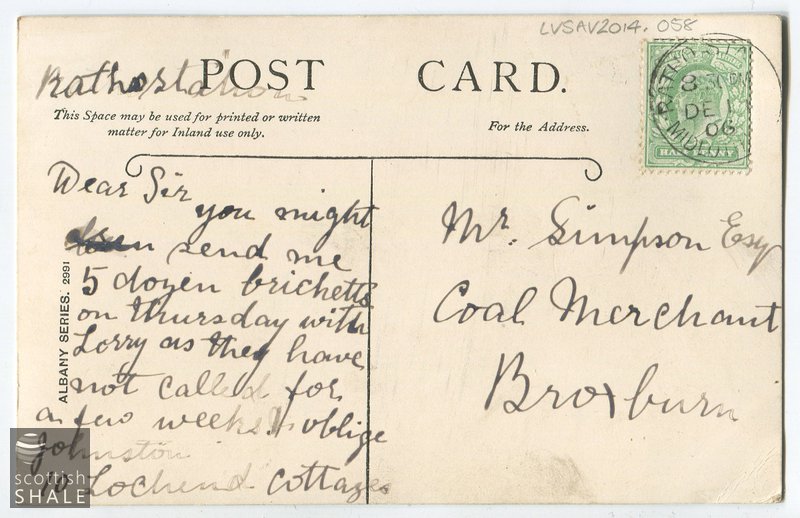 LVSAV2014.058
Ratho Station
POST CARD.
This Space may be used for printed or written
matter for Inland use only.
For the Address.
RATHO STA
8 PM
DE 1
06
MIDL
HALFPENNY
Dear Sir
you might
send me
5 dozen bricketts
on thursday with
Lorry as they have
not called for
a few weeks & oblige
Johnston
10 Lochend Cottages
ALBANY SERIES. 2991
Mr. Simpson Esq
Coal Merchant
Broxburn
scottish
SHALE